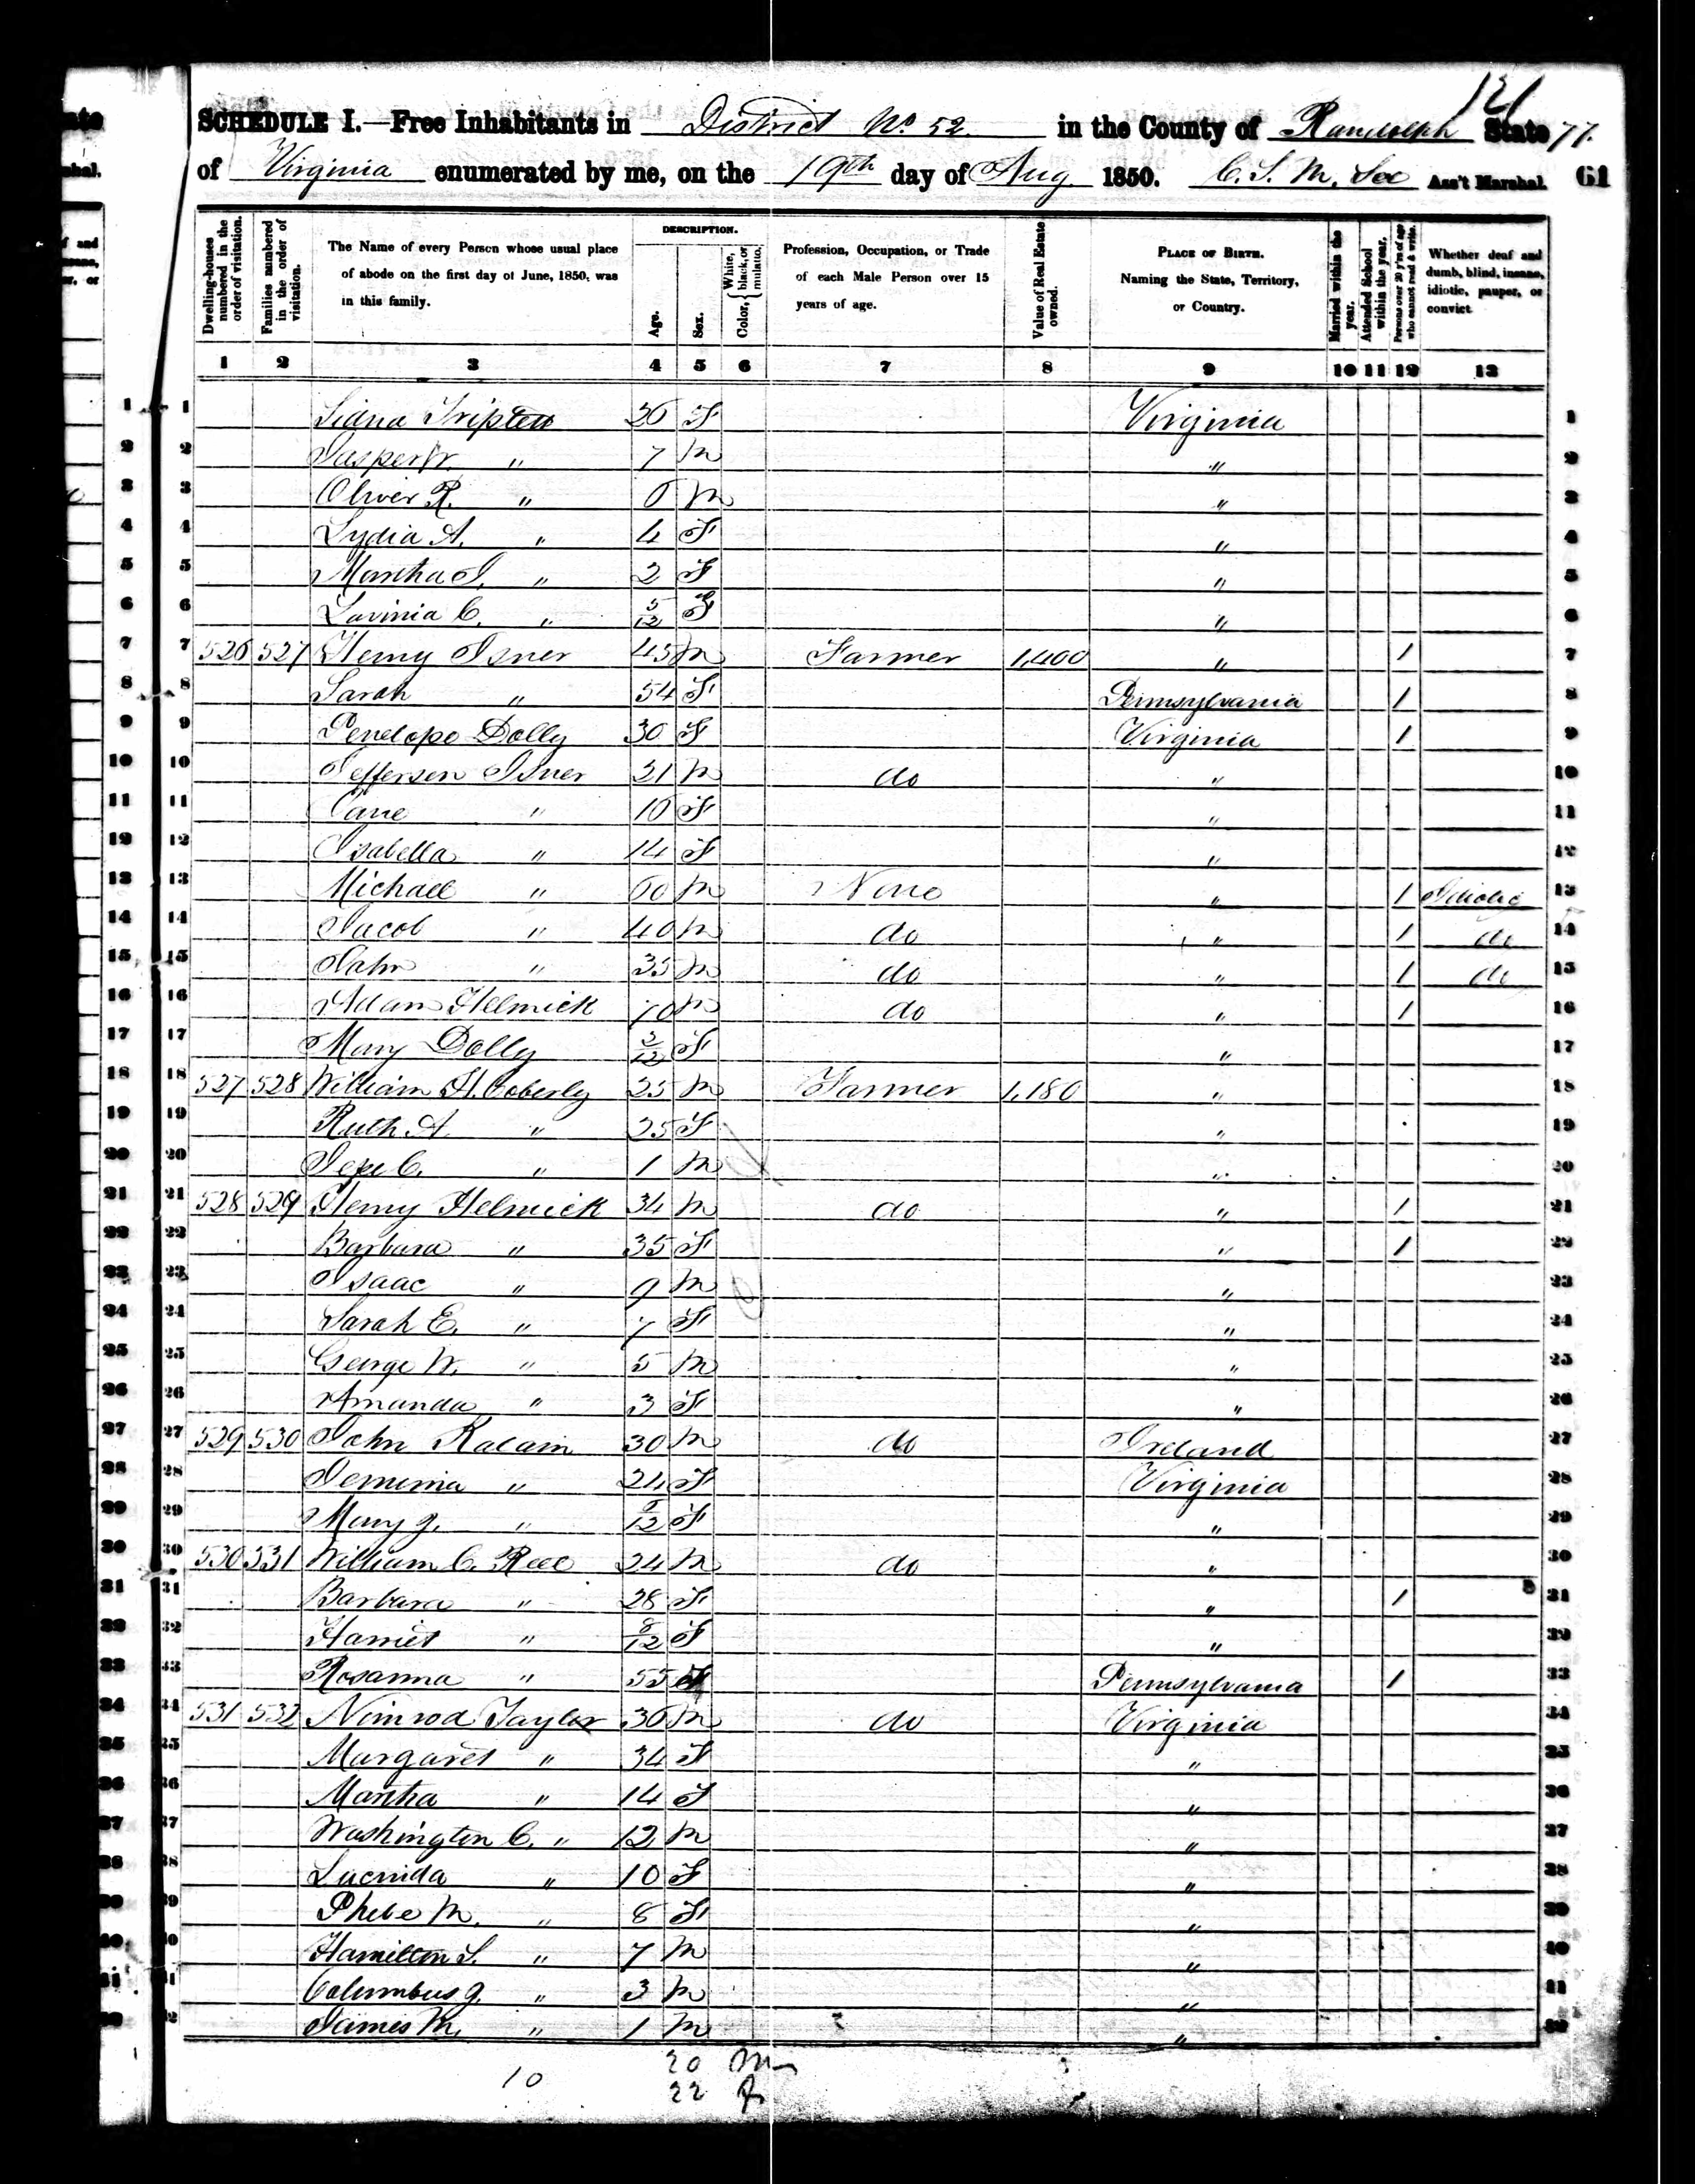 121
SCHEDULE I.—Free Inhabitants in District No. 52 in the County of Randolph State 77.
of Virginia enumerated by me, on the 19th day of Aug 1850. C. S. M. See Ass't Marshal. 61
Dwelling-houses numbered in the order of visitation.
Families numbered in the order of visitation.
The Name of every Person whose usual place of abode on the first day of June, 1850, was in this family.
DESCRIPTION.
Age.
Sex.
Color, { White, black, or mulatto.
Profession, Occupation, or Trade of each Male Person over 15 years of age.
Value of Real Estate owned.
PLACE OF BIRTH. Naming the State, Territory, or Country.
Married within the year.
Attended School within the year.
Persons over 20 y'rs of age who cannot read & write.
Whether deaf and dumb, blind, insane, idiotic, pauper, or convict
1 2 3 4 5 6 7 8 9 10 11 12 13
1 F Virginia 1
2 Jasper W. " 7 M " 2
3 Oliver R. " 6 M " 3
4 Lydia A. " 4 F " 4
5 Martha J. " 2 F " 5
6 Lavinia C. " 5/12 F " 6
7 526 527 Henry Isner 45 M Farmer 1,400 " 1 7
8 Sarah " 54 F Pennsylvania 1 8
9 Penelope Dolly 30 F Virginia 1 9
10 Jefferson Isner 21 M do " 10
11 Jane " 16 F " 11
12 Isabella " 14 F " 12
13 Michael " 60 M None " 1 Idiotic 13
14 Jacob " 40 M do " 1 do 14
15 John " 35 M do " 1 do 15
16 Adam Helmick 70 M do " 1 16
17 Mary Dolly /12 F " 17
18 527 528 William H. Coberly 25 M Farmer 1,180 " 18
19 Ruth A. " 25 F " 19
20 C. " 1 M " 20
21 528 529 Henry Helmick 34 M do " 1 21
22 Barbara " 35 F " 1 22
23 Isaac " 9 M " 23
24 Sarah E. " 7 F " 24
25 George W. " 5 M " 25
26 Amanda " 3 F " 26
27 529 530 John 30 M do Ireland 27
28 Jemima " 24 F Virginia 28
29 Mary J. " /12 F " 29
30 530 531 William C. 24 M do " 30
31 Barbara " 28 F " 1 31
32 Harriet " 8/12 F " 32
33 Rosanna " 55 F Pennsylvania 1 33
34 531 532 Nimrod Taylor 36 M do Virginia 34
35 Margaret " 34 F " 35
36 Martha " 14 F " 36
37 Washington C. " 12 M " 37
38 Lucinda " 10 F " 38
39 Phebe M. " 8 F " 39
40 Hamilton S. " 7 M " 40
41 Columbus J. " 3 M " 41
42 James M. " 1 M " 42
10 20 M
22 F